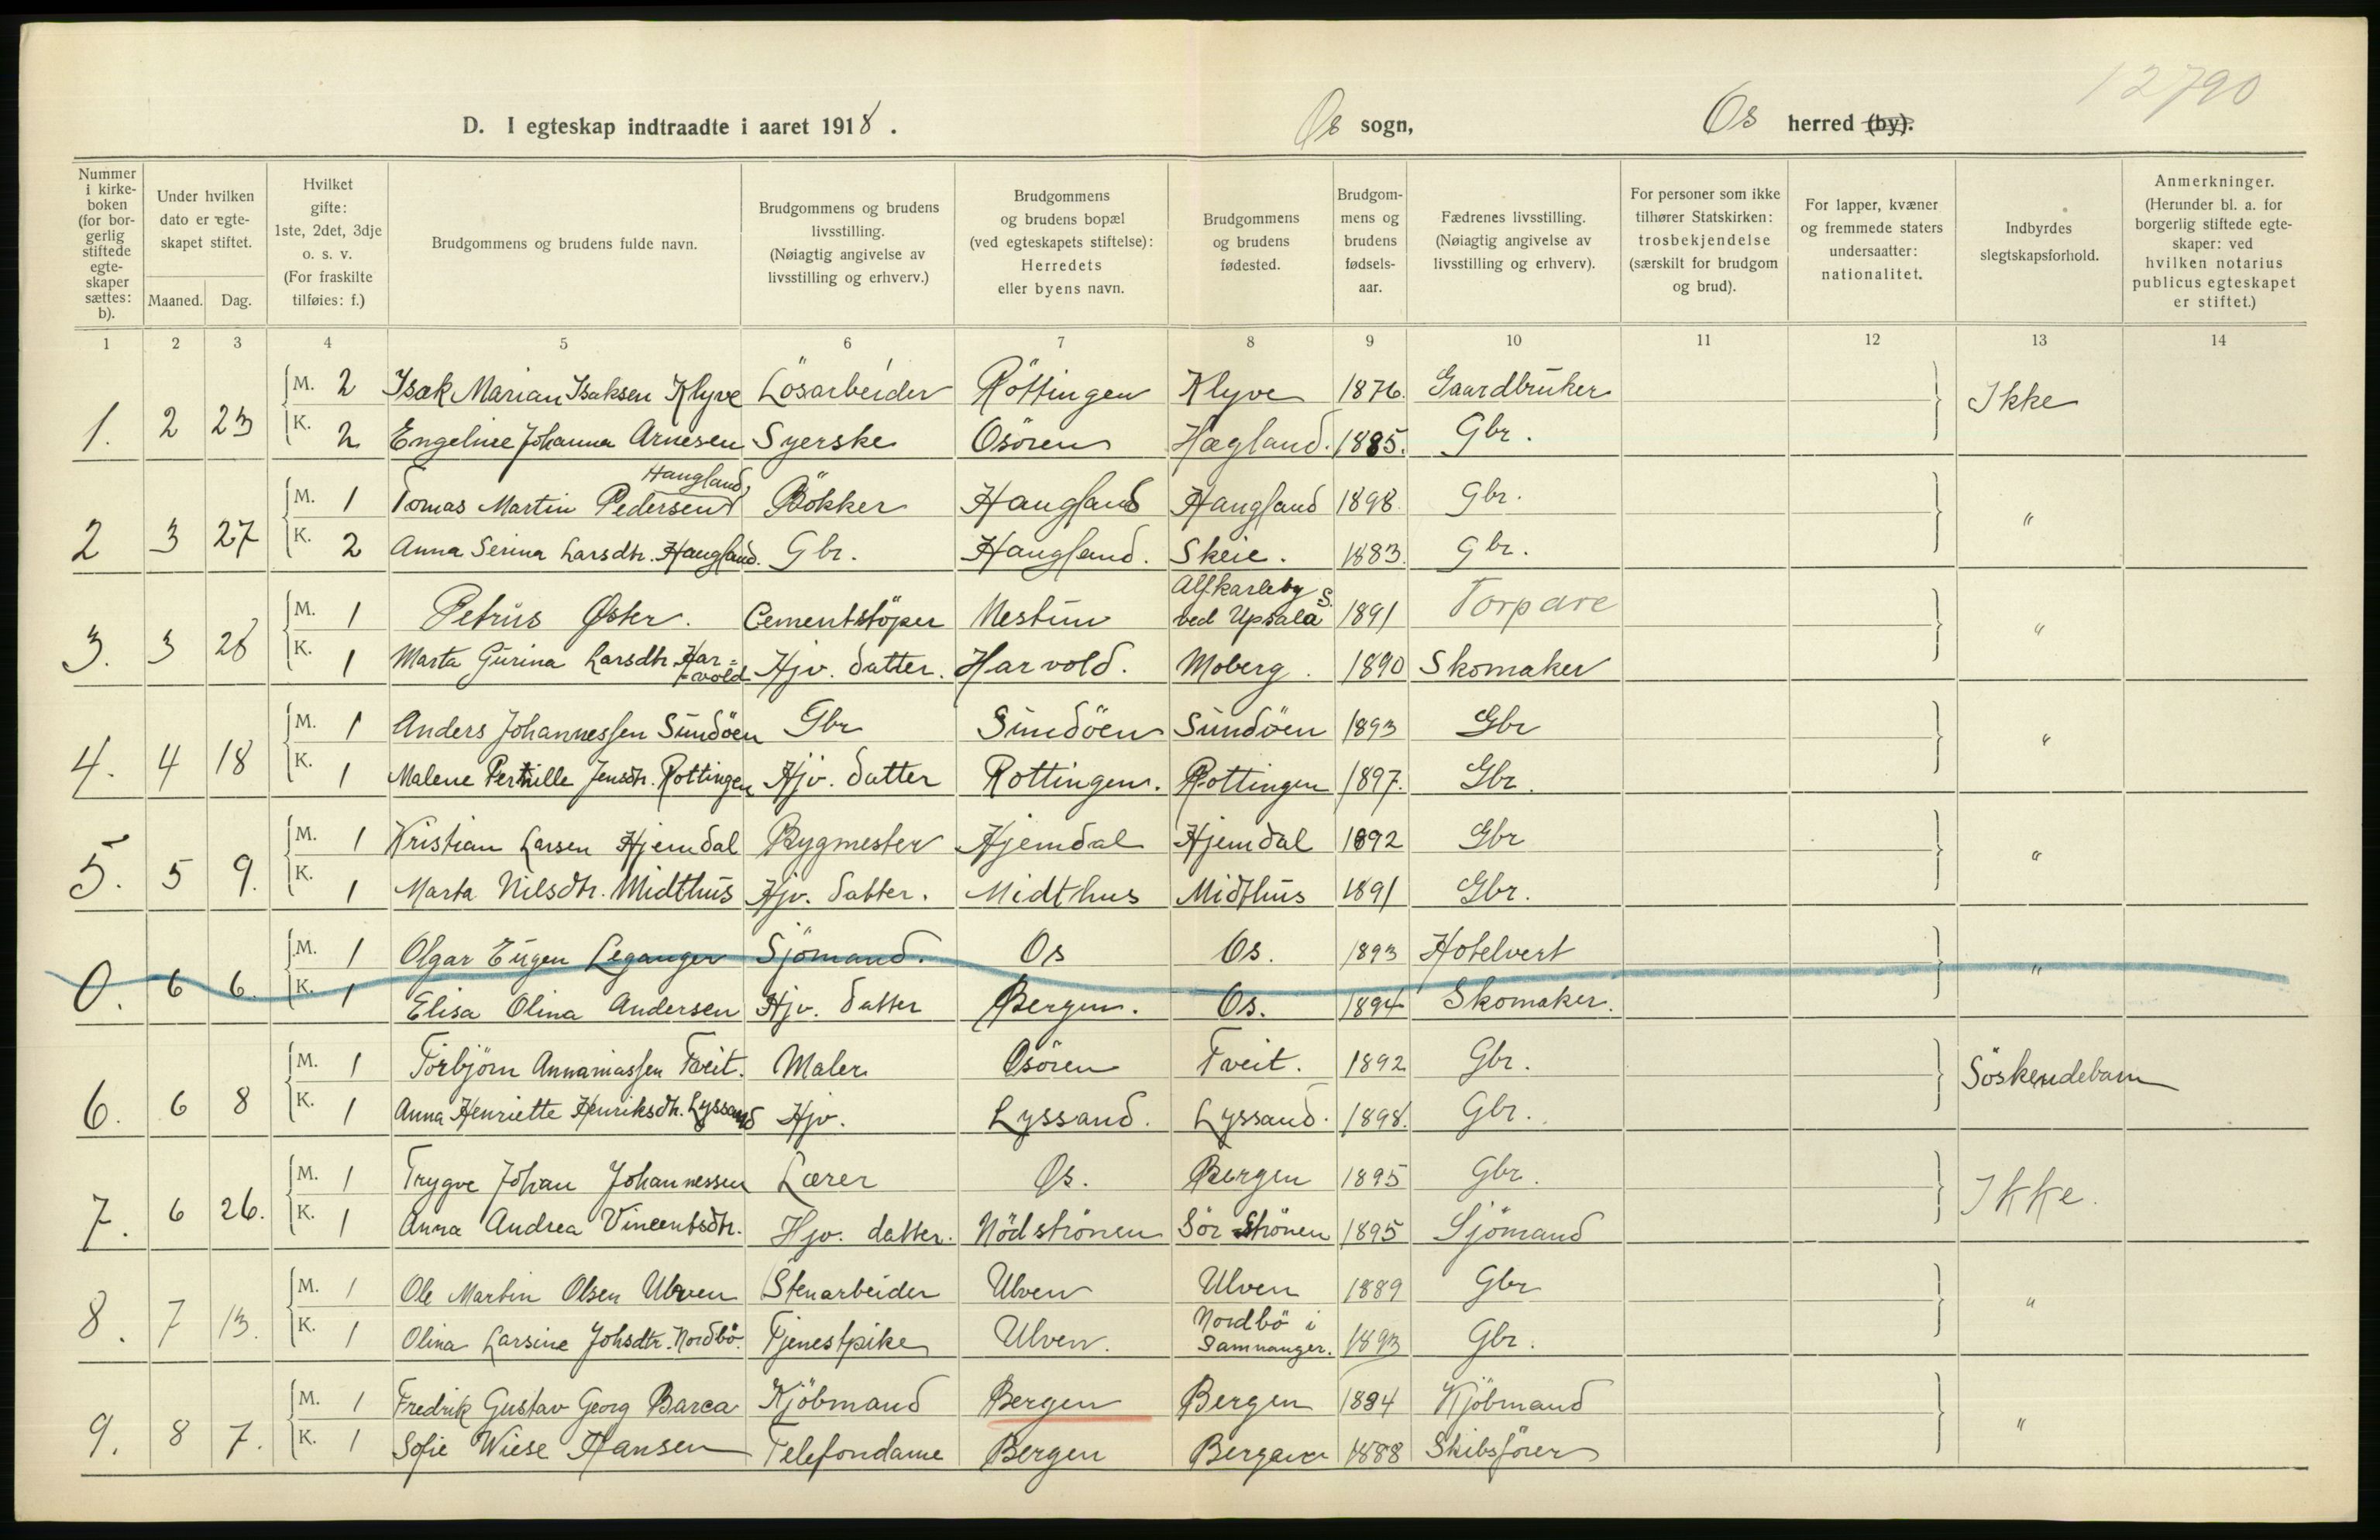 12790
D. I egteskap indtraadte i aaret 1918. Os sogn, Os herred (by).
Nummer i kirkeboken (for borgerlig stiftede egteskaper sættes: b).
Under hvilken dato er egteskapet stiftet.
Maaned. Dag.
Hvilket gifte: 1ste, 2det, 3dje o. s. v. (For fraskilte tilføies: f.)
Brudgommens og brudens fulde navn.
Brudgommens og brudens livsstilling. (Nøiagtig angivelse av livsstilling og erhverv.)
Brudgommens og brudens bopæl (ved egteskapets stiftelse): Herredets eller byens navn.
Brudgommens og brudens fødested.
Brudgommens og brudens fødselsaar.
Fædrenes livsstilling. (Nøiagtig angivelse av livsstilling og erhverv).
For personer som ikke tilhører Statskirken: trosbekjendelse (særskilt for brudgom og brud).
For lapper, kvæner og fremmede staters undersaatter: nationalitet.
Indbyrdes slegtskapsforhold.
Anmerkninger. (Herunder bl. a. for borgerlig stiftede egteskaper: ved hvilken notarius publicus egteskapet er stiftet.)
1 2 3 4 5 6 7 8 9 10 11 12 13 14
M. 2 Isak Marian Isaksen Klyve Lösarbeider Röttingen Klyve 1876. Gaardbruker Ikke
1. 2 23 K. 2 Engeline Johanna Arnesen Syerske Osören Hægland. 1885. Gbr.
M. 1 Tomas Martin Pedersen Haugland, Bökker Haugland Haugland 1898. Gbr. "
2 3 27 K. 2 Anna Serina Larsdtr. Haugland. Gbr. Haugland. Skeie. 1883. Gbr.
M. 1 Petrus Öster. Cementstöper Nestun Alfkarleby ved Upsala S. 1891 Torpare "
3. 3 28 K. 1 Marta Gurina Larsdtr. Har=vold Hjv. datter. Harvold. Moberg. 1890 Skomaker
M. 1 Anders Johannessen Sundöen Gbr Sundöen Sundöen 1893 Gbr "
4. 4 18 K. 1 Malene Pernille Jensdtr. Rottingen Hjv. datter Rottingen. Rottingen 1897. Gbr.
M. 1 Kristian Larsen Hjemdal Bygmester Hjemdal Hjemdal 1892 Gbr "
5. 5 9. K. 1 Marta Nilsdtr. Midthus Hjv. datter. Midthus Midthus 1891 Gbr.
M. 1 Olgar Eugen Leganger Sjömand. Os Os. 1893 Hotelvert "
0. 6 6. K. 1 Elisa Olina Andersen Hjv. datter Bergen. Os. 1894 Skomaker.
M. 1 Torbjörn Annaniassen Tveit. Maler Osören Tveit. 1892 Gbr. Söskendebarn
6. 6 8 K. 1 Anna Henriette Henriksdtr. Lyssand Hjv. Lyssand. Lyssand. 1898. Gbr.
M. 1 Trygve Johan Johannessen Lærer Os. Bergen 1895 Gbr. Ikke.
7. 6 26. K. 1 Anna Andrea Vincentsdtr. Hjv. datter. Nödströnen Sör Strönen 1895 Sjömand
M. 1 Ole Martin Olsen Ulven Stenarbeider Ulven Ulven 1889 Gbr "
8. 7 13. K. 1 Olina Larsine Johsdtr. Nordbö. Tjenestpike Ulven. Nordbö i Samnanger. 1893 Gbr.
M. 1 Fredrik Gustav Georg Barca Kjöbmand Bergen Bergen 1894 Kjöbmand "
9. 8 7. K. 1 Sofie Wiese Hansen Telefondame Bergen Bergen 1888 Skibsförer